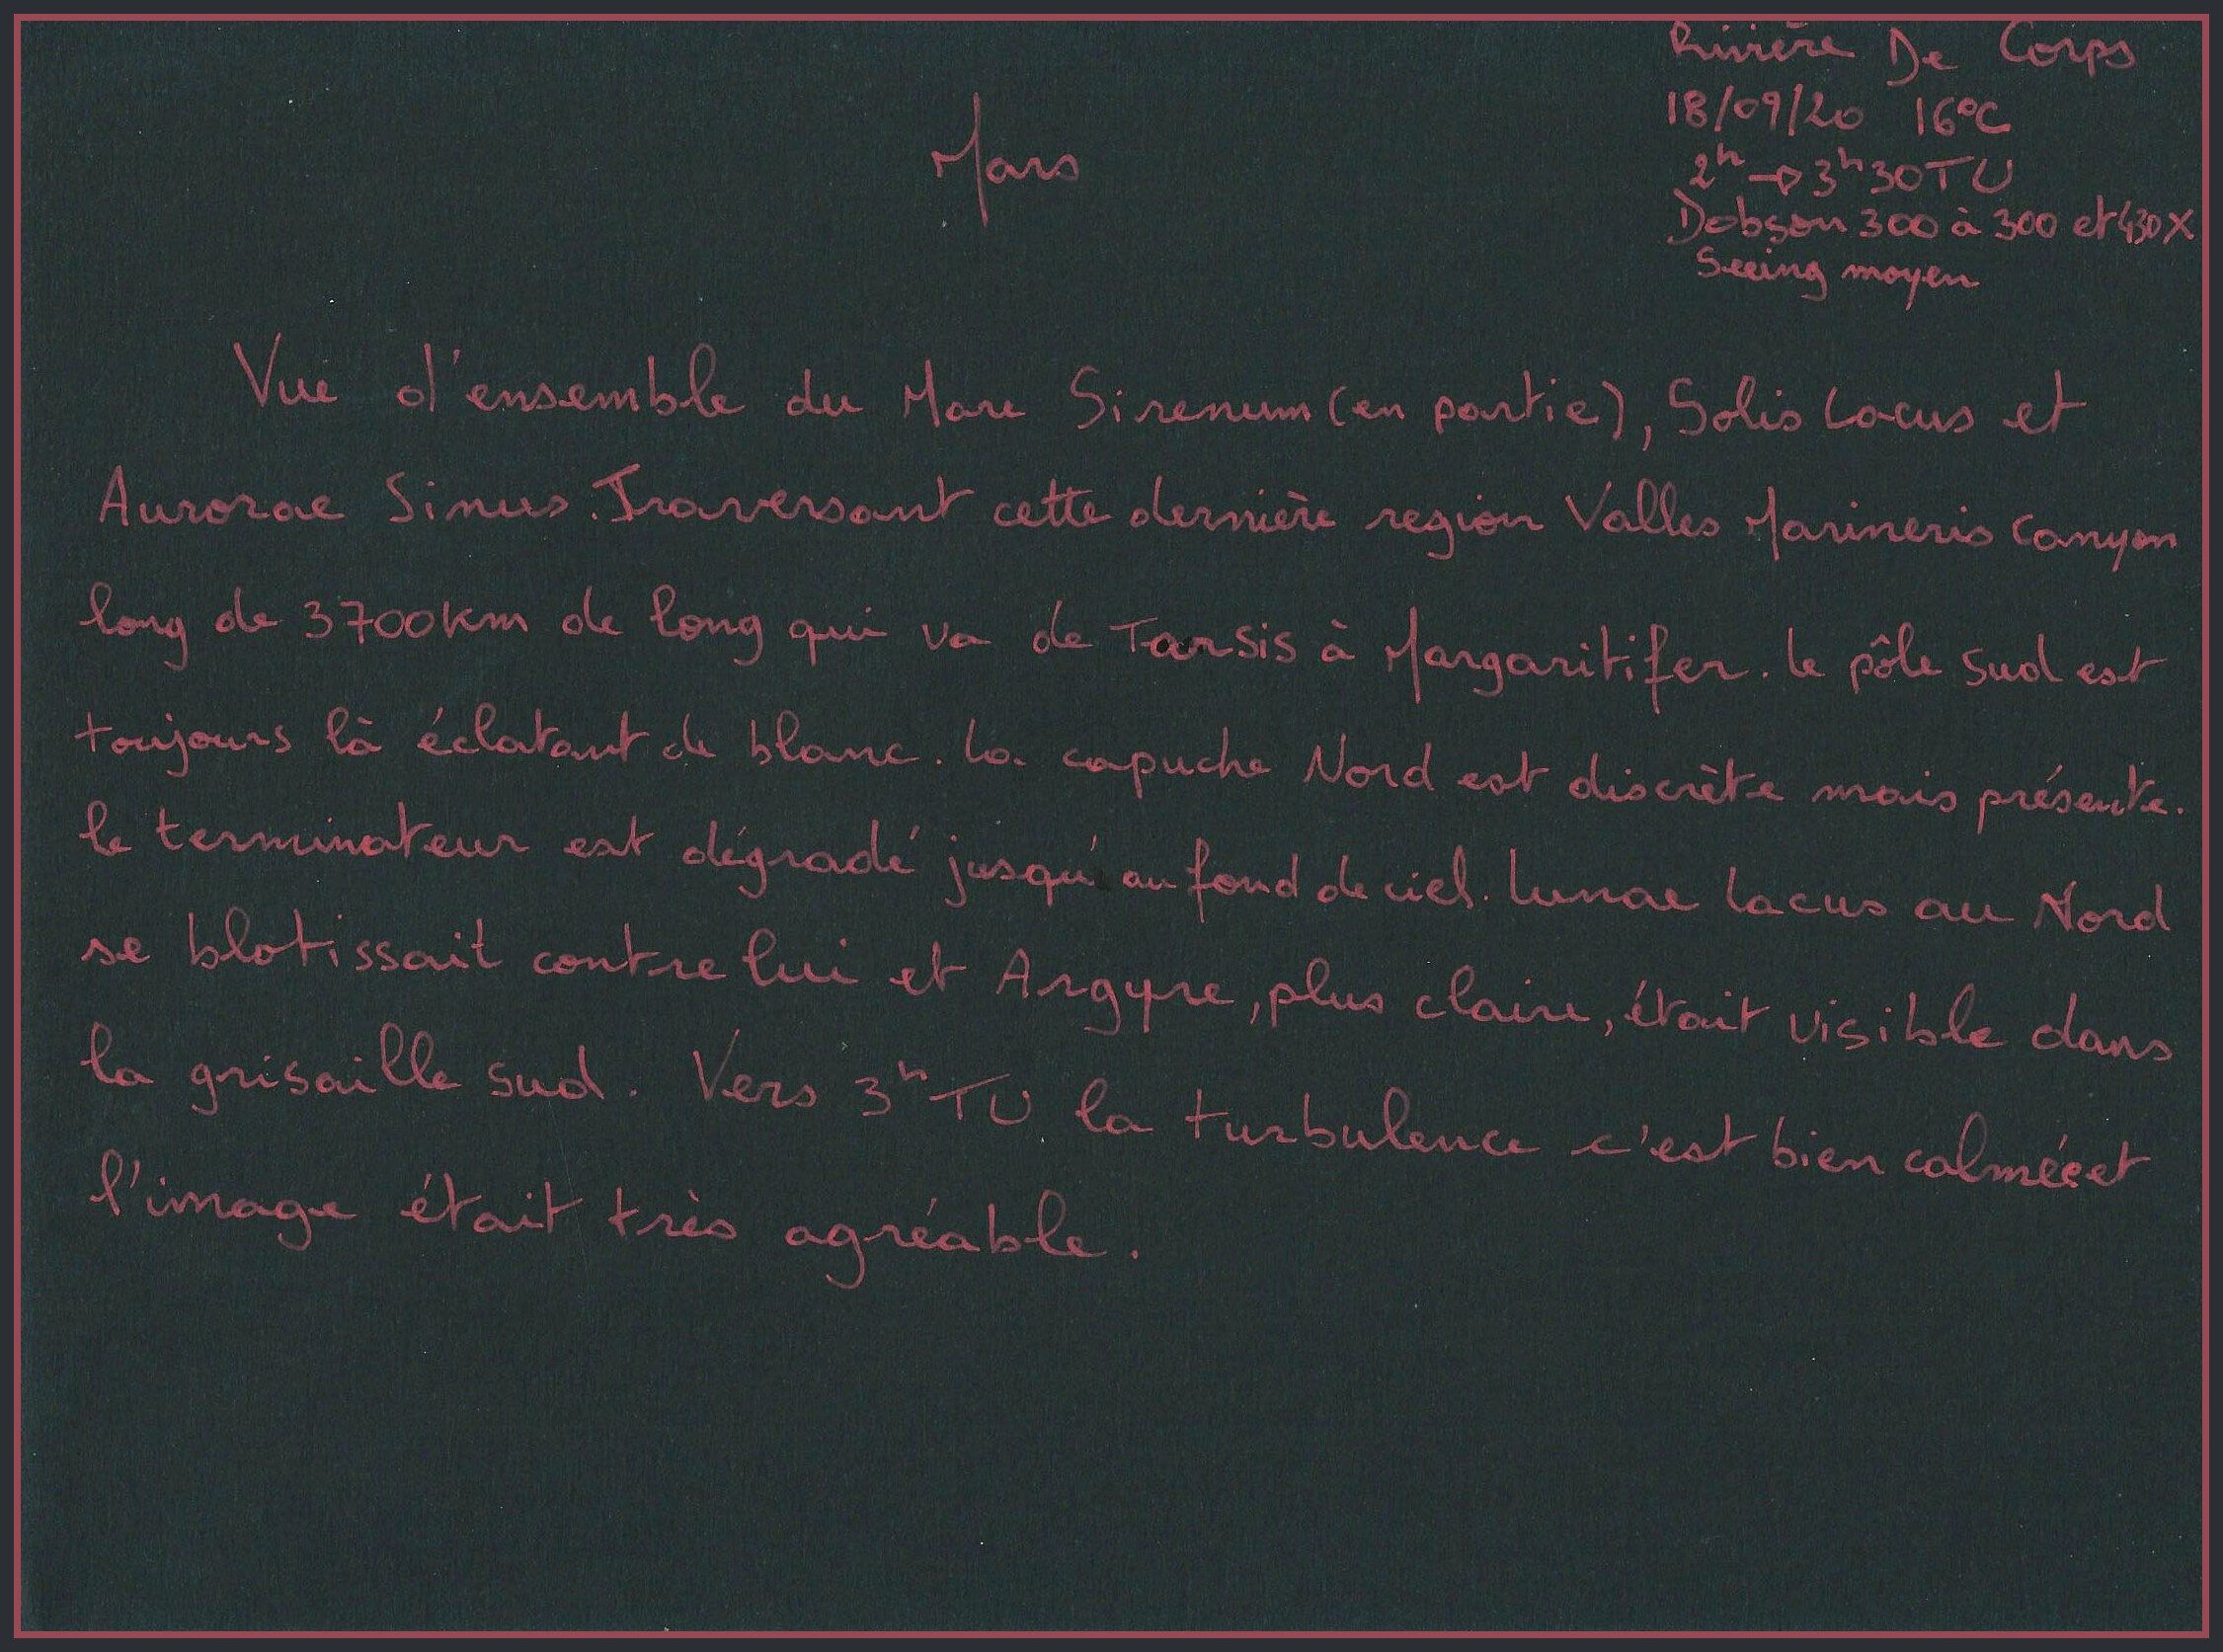 Rivière De Corps
18/09/20 16°C
2h → 3h30TU
Dobson 300 à 300 et 430X
Seeing moyen
Mars
Vue d'ensemble du Mare Sirenum (en partie), Solis Lacus et
Aurorae Sinus. Traversant cette dernière region Valles Marineris canyon
long de 3700km de long qui va de Tarsis à Margaritifer. Le pôle sud est
toujours là éclatant de blanc. La capuche Nord est discrète mais présente.
Le terminateur est dégradé jusqu'au fond de ciel. Lunae Lacus au Nord
se blotissait contre lui et Argyre, plus claire, était visible dans
la grisaille sud. Vers 3h TU la turbulence c'est bien calmée et
l'image était très agréable.